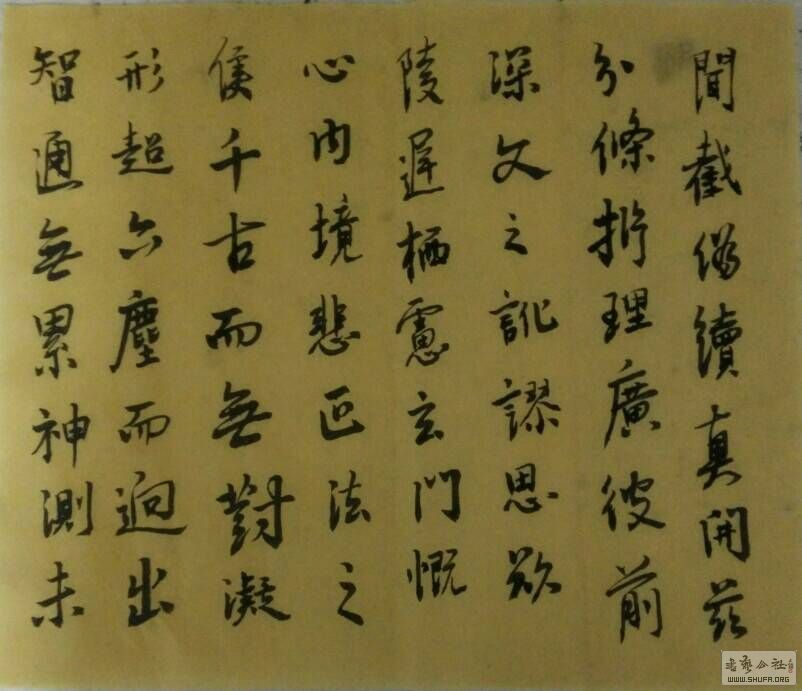 聞截偽續真開茲
分條析理廣彼前
深文之訛謬思欲
陵遲栖慮玄門慨
心內境悲正法之
隻千古而無對凝
形超六塵而迥出
智通無累神測未
书艺公社
WWW.SHUFA.ORG